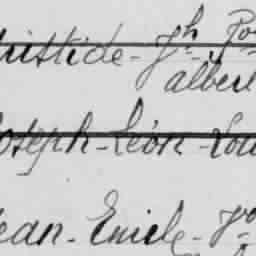 ristide - Jh
albert
oseph - Léon - Lou
ean - Emile -